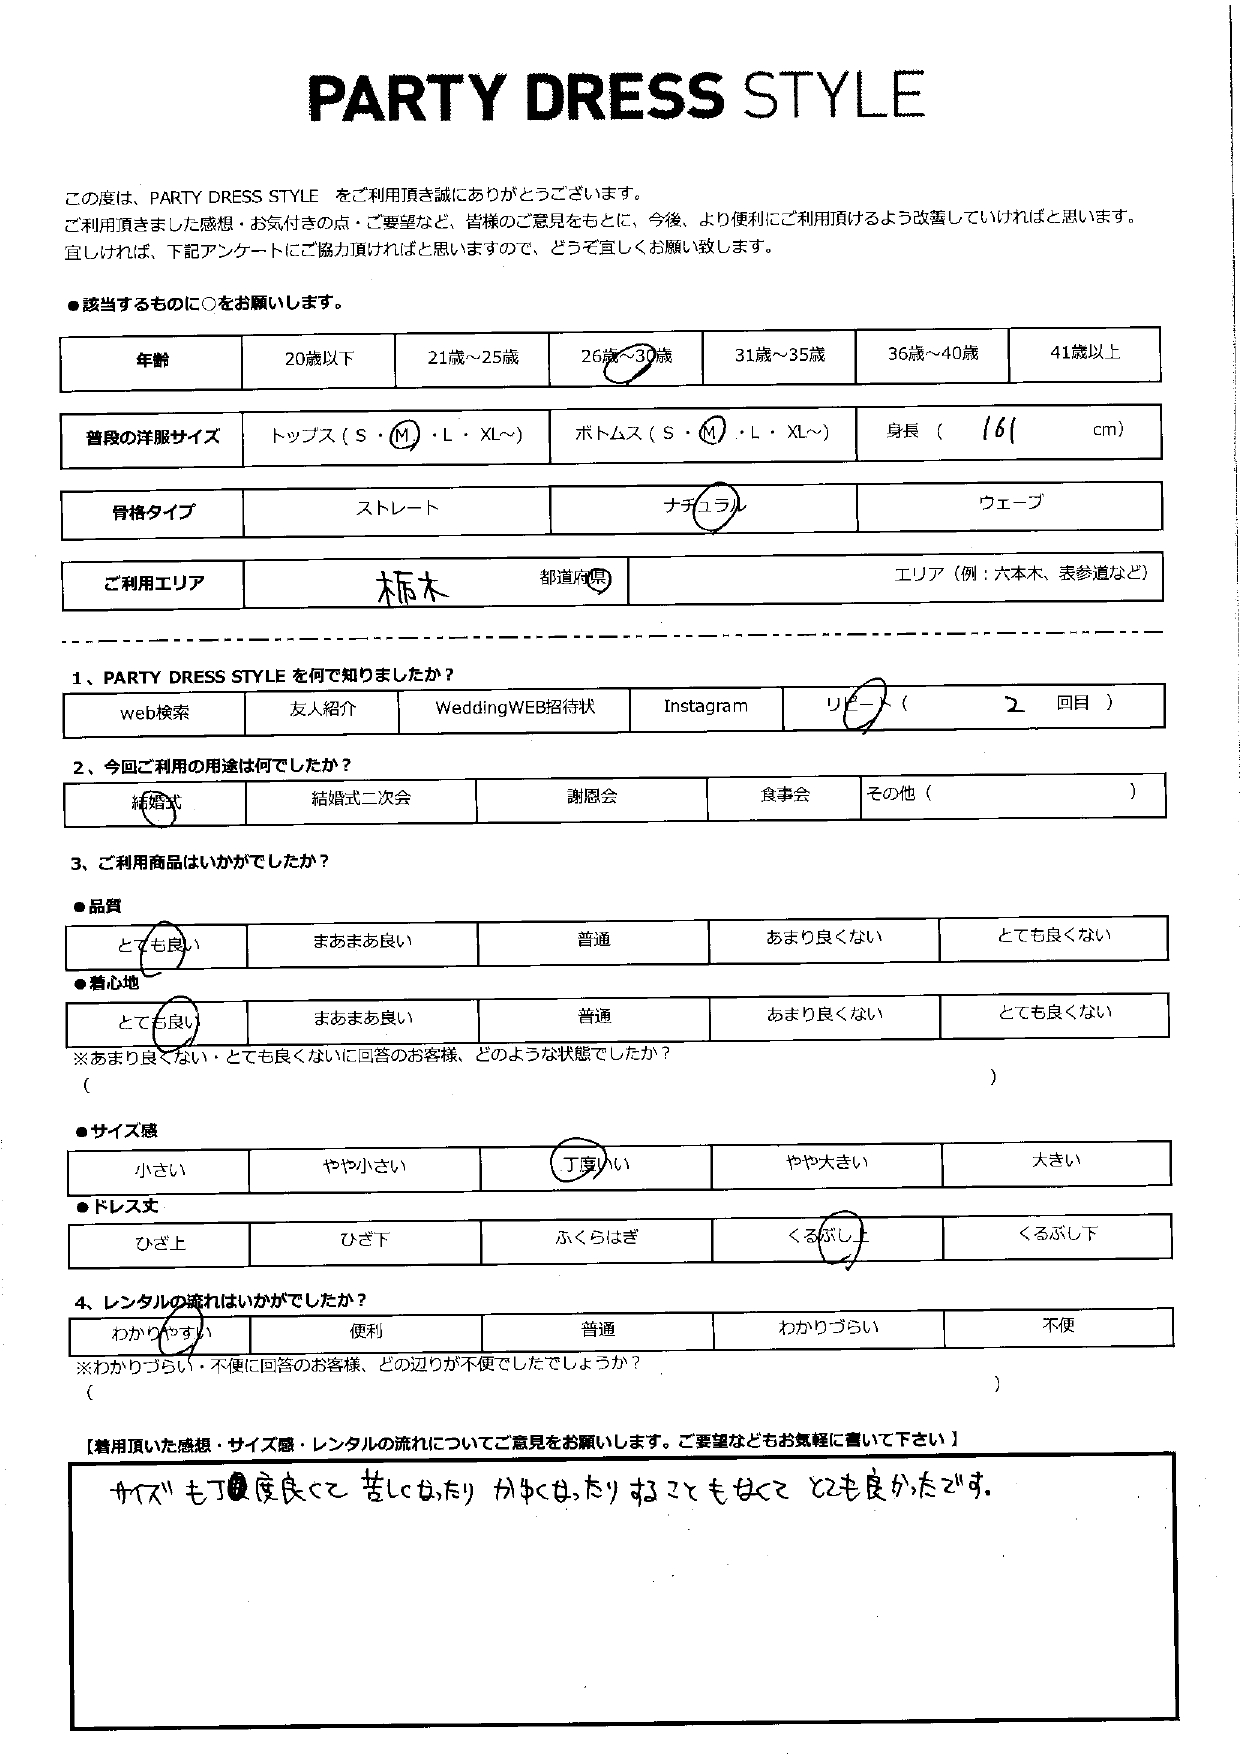 PARTY DRESS STYLE
この度は、PARTY DRESS STYLE をご利用頂き誠にありがとうございます。
ご利用頂きました感想・お気付きの点・ご要望など、皆様のご意見をもとに、今後、より便利にご利用頂けるよう改善していければと思います。
宜しければ、下記アンケートにご協力頂ければと思いますので、どうぞ宜しくお願い致します。
●該当するものに○をお願いします。
年齢 20歳以下 21歳～25歳 26歳～30歳 31歳～35歳 36歳～40歳 41歳以上
普段の洋服サイズ トップス ( S ・ M ・L ・ XL～) ボトムス ( S ・ M ・L ・ XL～) 身長 ( 161 cm)
骨格タイプ ストレート ナチュラル ウェーブ
ご利用エリア 栃木 都道府県 エリア（例：六本木、表参道など）
1、PARTY DRESS STYLE を何で知りましたか？
web検索 友人紹介 WeddingWEB招待状 Instagram リピート ( 2 回目 )
2、今回ご利用の用途は何でしたか？
結婚式 結婚式二次会 謝恩会 食事会 その他 ( )
3、ご利用商品はいかがでしたか？
●品質
とても良い まあまあ良い 普通 あまり良くない とても良くない
●着心地
とても良い まあまあ良い 普通 あまり良くない とても良くない
※あまり良くない・とても良くないに回答のお客様、どのような状態でしたか？
( )
●サイズ感
小さい やや小さい 丁度いい やや大きい 大きい
●ドレス丈
ひざ上 ひざ下 ふくらはぎ くるぶし上 くるぶし下
4、レンタルの流れはいかがでしたか？
わかりやすい 便利 普通 わかりづらい 不便
※わかりづらい・不便に回答のお客様、どの辺りが不便でしたでしょうか？
( )
【着用頂いた感想・サイズ感・レンタルの流れについてご意見をお願いします。ご要望などもお気軽に書いて下さい 】
サイズも丁度良くて 苦しくなったり かゆくなったり することもなくて とても良かったです。